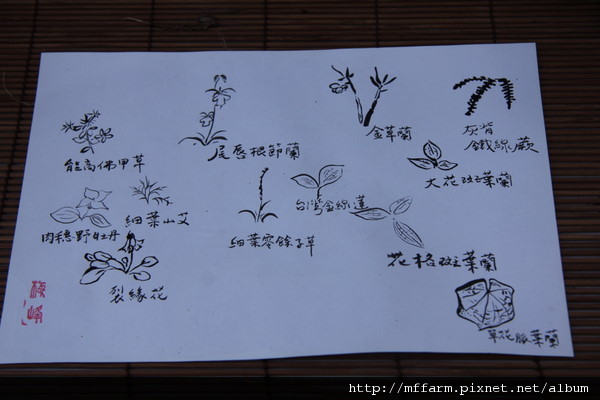 能高佛甲草
尾唇根節蘭
金草蘭
灰背
鐵線蕨
大花斑葉蘭
肉穗野牡丹
細葉山艾
細葉零餘子草
台灣金線蓮
花格斑葉蘭
裂緣花
單花脈葉蘭
http://mffarm.pixnet.net/album